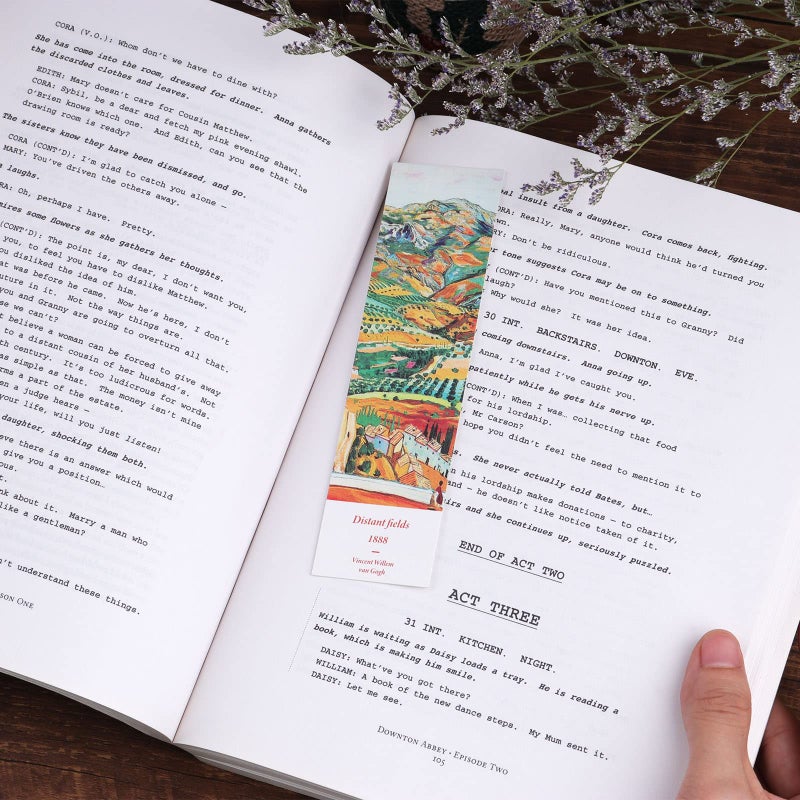 CORA (V.O.): Whom don't we have to dine with?
She has come into the room, dressed for dinner. Anna gathers
the discarded clothes and leaves.
EDITH: Mary doesn't care for Cousin Matthew.
CORA: Sybil, be a dear and fetch my pink evening shawl.
O'Brien knows which one. And Edith, can you see that the
drawing room is ready?
The sisters know they have been dismissed, and go.
CORA (CONT'D): I'm glad to catch you alone –
MARY: You've driven the others away.
laughs.
Oh, perhaps I have. Pretty.
some flowers as she gathers her thoughts.
(CONT'D): The point is, my dear, I don't want you,
you, to feel you have to dislike Matthew.
you disliked the idea of him.
was before he came. Now he's here, I don't
future in it. Not the way things are.
you and Granny are going to overturn all that.
se we can't?
believe a woman can be forced to give away
to a distant cousin of her husband's. Not
th century. It's too ludicrous for words.
as simple as that. The money isn't mine
rms a part of the estate.
en a judge hears –
your life, will you just listen!
daughter, shocking them both.
eve there is an answer which would
give you a position…
about it. Marry a man who
like a gentleman?
't understand these things.
SON ONE
Distant fields
1888
Vincent Willem
van Gogh
insult from a daughter. Cora comes back, fighting.
Really, Mary, anyone would think he'd turned you
Don't be ridiculous.
tone suggests Cora may be on to something.
(CONT'D): Have you mentioned this to Granny? Did
laugh?
Why would she? It was her idea.
30 INT. BACKSTAIRS. DOWNTON. EVE.
coming downstairs. Anna going up.
Anna, I'm glad I've caught you.
patiently while he gets his nerve up.
CONT'D): When I was… collecting that food
for his lordship.
Mr Carson?
hope you didn't feel the need to mention it to
She never actually told Bates, but…
his lordship makes donations – to charity,
and – he doesn't like notice taken of it.
and she continues up, seriously puzzled.
END OF ACT TWO
ACT THREE
31 INT. KITCHEN. NIGHT.
William is waiting as Daisy loads a tray. He is reading a
book, which is making him smile.
DAISY: What've you got there?
WILLIAM: A book of the new dance steps. My Mum sent it.
DAISY: Let me see.
DOWNTON ABBEY • EPISODE TWO
105